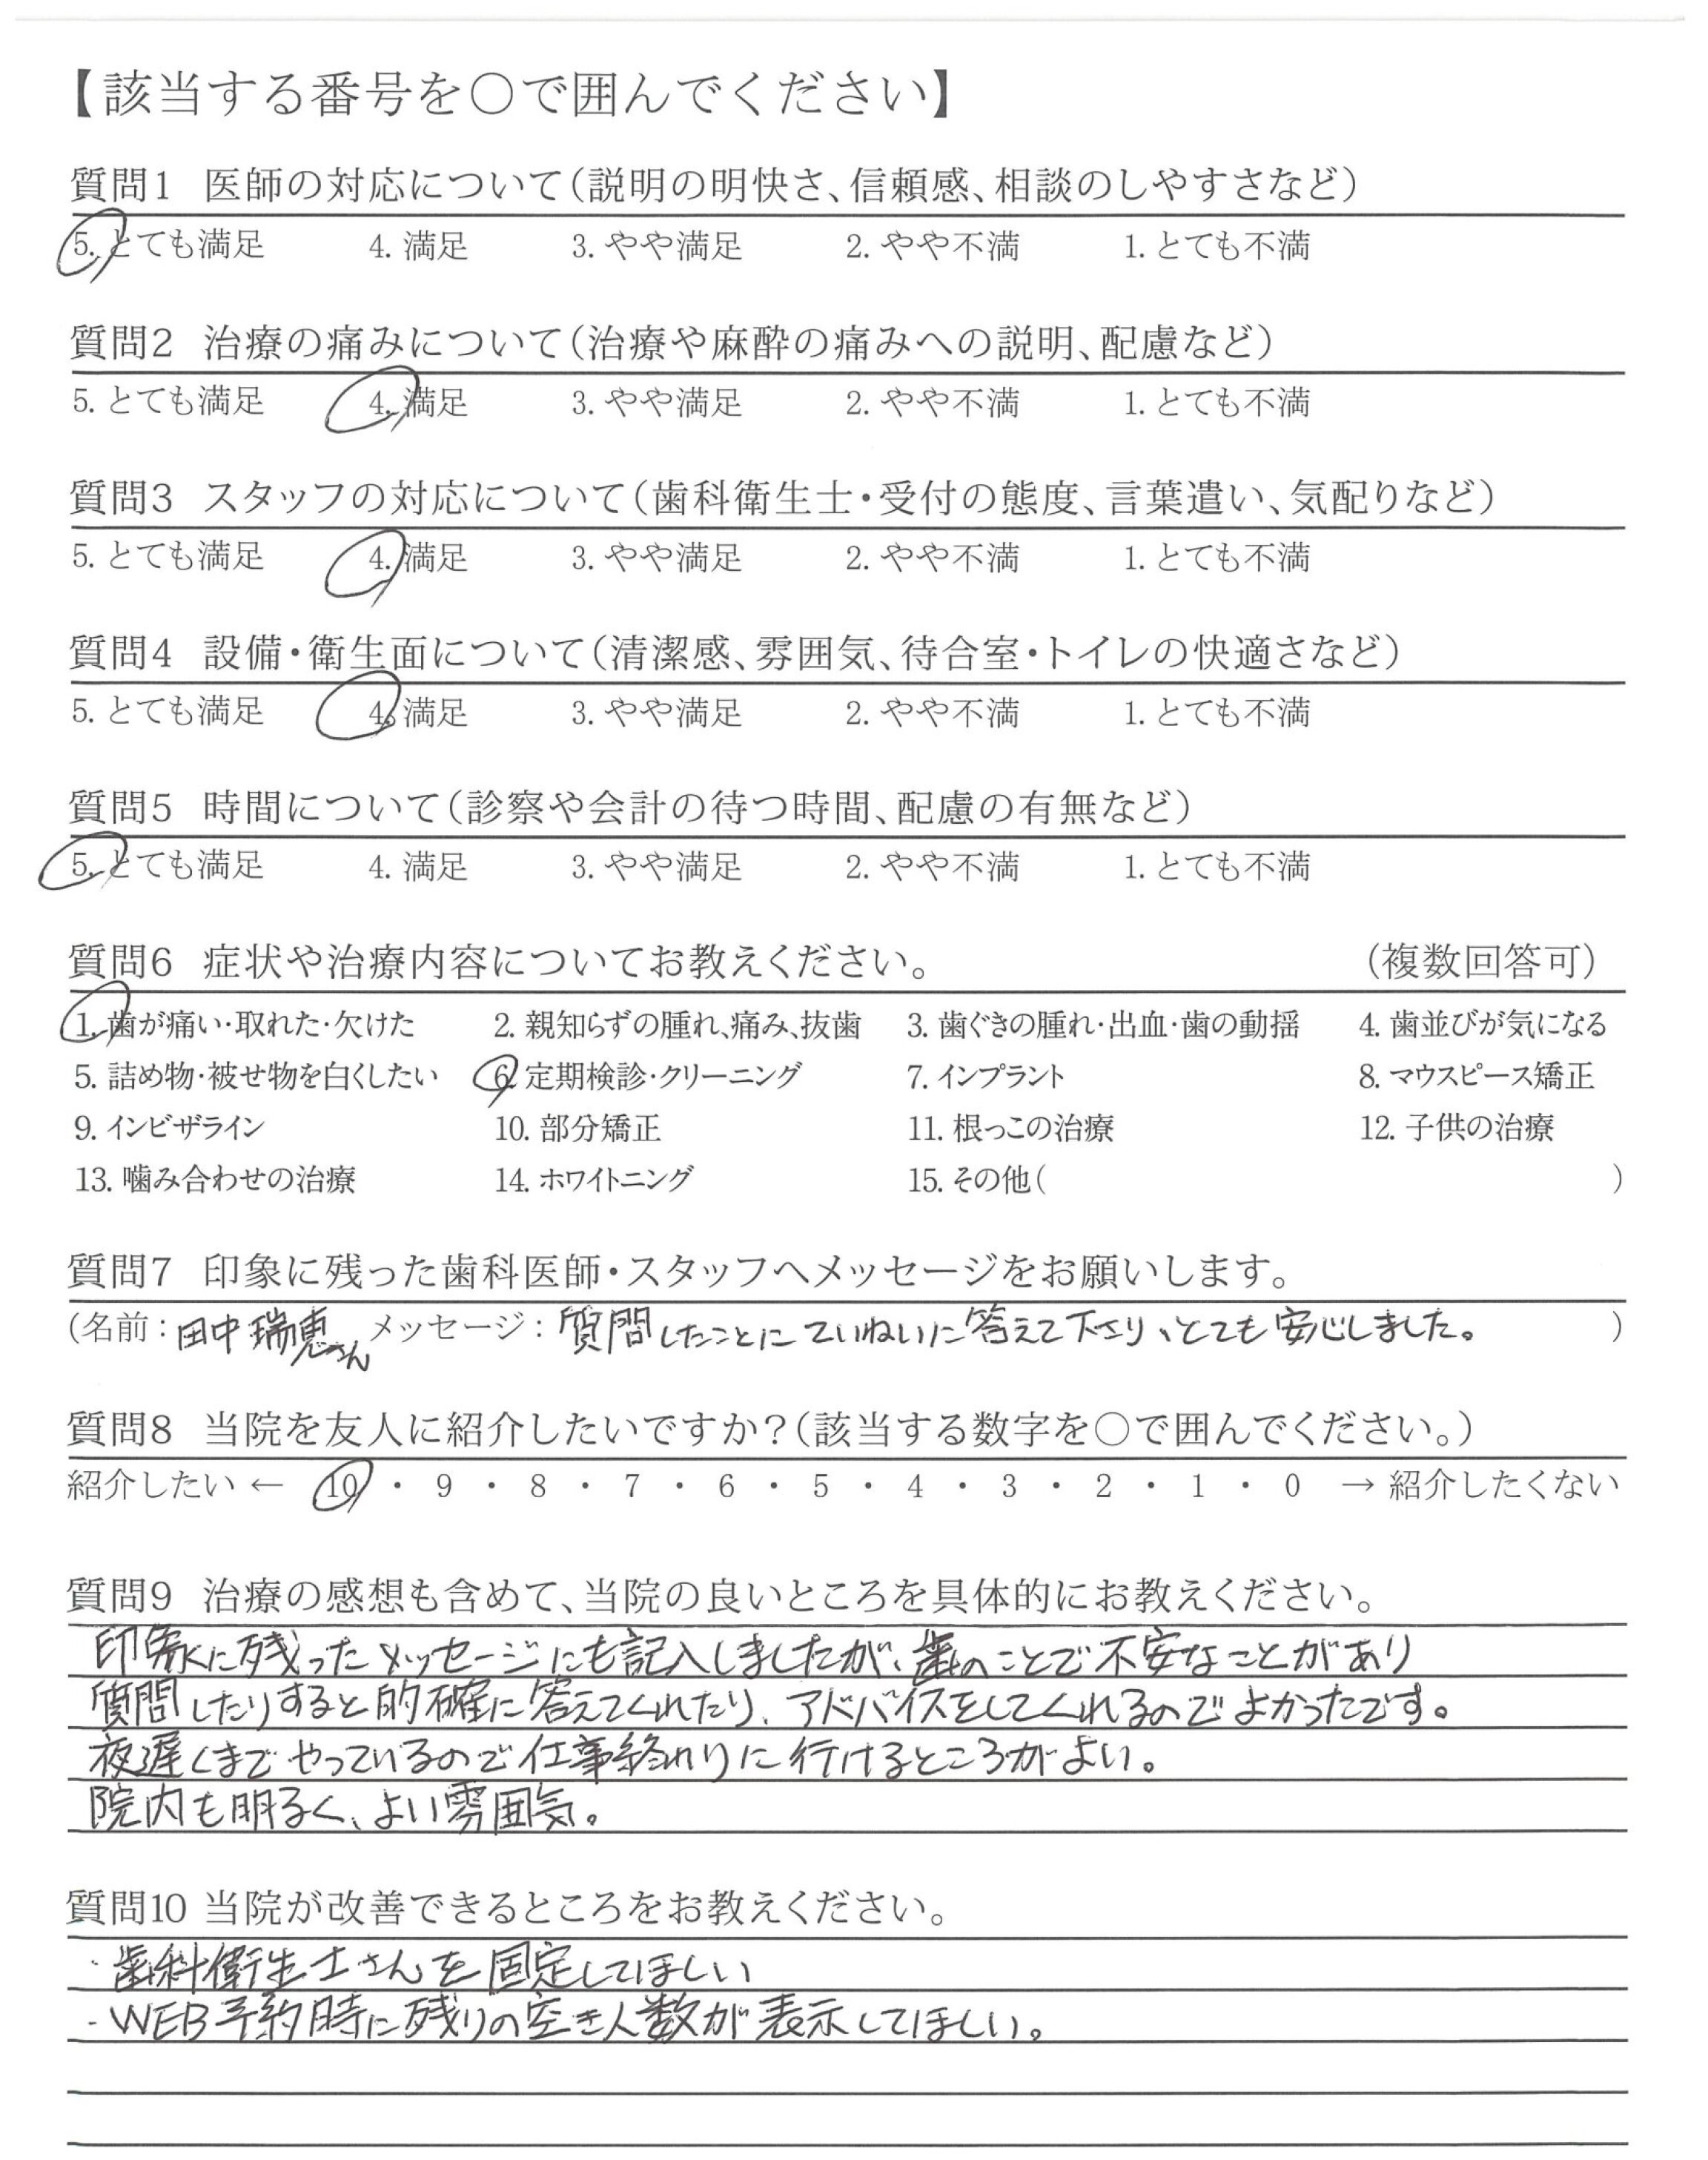 【該当する番号を○で囲んでください】
質問1 医師の対応について(説明の明快さ、信頼感、相談のしやすさなど)
5. とても満足 4. 満足 3. やや満足 2. やや不満 1. とても不満
質問2 治療の痛みについて(治療や麻酔の痛みへの説明、配慮など)
5. とても満足 4. 満足 3. やや満足 2. やや不満 1. とても不満
質問3 スタッフの対応について(歯科衛生士・受付の態度、言葉遣い、気配りなど)
5. とても満足 4. 満足 3. やや満足 2. やや不満 1. とても不満
質問4 設備・衛生面について(清潔感、雰囲気、待合室・トイレの快適さなど)
5. とても満足 4. 満足 3. やや満足 2. やや不満 1. とても不満
質問5 時間について(診察や会計の待つ時間、配慮の有無など)
5. とても満足 4. 満足 3. やや満足 2. やや不満 1. とても不満
質問6 症状や治療内容についてお教えください。 (複数回答可)
1. 歯が痛い・取れた・欠けた 2. 親知らずの腫れ、痛み、抜歯 3. 歯ぐきの腫れ・出血・歯の動揺 4. 歯並びが気になる
5. 詰め物・被せ物を白くしたい 6. 定期検診・クリーニング 7. インプラント 8. マウスピース矯正
9. インビザライン 10. 部分矯正 11. 根っこの治療 12. 子供の治療
13. 噛み合わせの治療 14. ホワイトニング 15. その他( )
質問7 印象に残った歯科医師・スタッフへメッセージをお願いします。
(名前：田中瑞恵さん メッセージ：質問したことにていねいに答えて下さり、とても安心しました。 )
質問8 当院を友人に紹介したいですか？(該当する数字を○で囲んでください。)
紹介したい ← 10 ・ 9 ・ 8 ・ 7 ・ 6 ・ 5 ・ 4 ・ 3 ・ 2 ・ 1 ・ 0 → 紹介したくない
質問9 治療の感想も含めて、当院の良いところを具体的にお教えください。
印象に残ったメッセージにも記入しましたが、歯のことで不安なことがあり
質問したりすると的確に答えてくれたり、アドバイスをしてくれるのでよかったです。
夜遅くまでやっているので仕事終わりに行けるところがよい。
院内も明るく、よい雰囲気。
質問10 当院が改善できるところをお教えください。
・歯科衛生士さんを固定してほしい
・WEB予約時に残りの空き人数が表示してほしい。